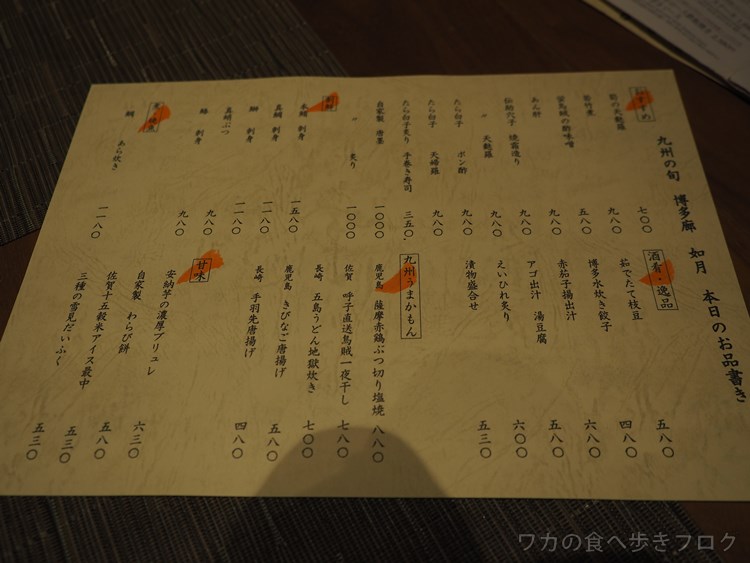 九州の旬 博多廊 如月 本日のお品書き
おすすめ
筍の天麩羅 七〇〇
若竹煮 九八〇
蛍烏賊の酢味噌 五八〇
あん肝 九八〇
伝助穴子 焼霜造り 九八〇
〃 天麩羅 九八〇
たら白子 ポン酢 九八〇
たら白子 天婦羅 九八〇
たら白子炙り 手巻き寿司 三五〇
自家製 唐墨 一〇〇〇
〃 炙り 一〇〇〇
本鮪 刺身 一五八〇
真鯛 刺身 一二八〇
鰤 刺身 一一八〇
真蛸ぶつ 九八〇
刺身 九八〇
鯛 あら炊き 一一八〇
酒肴・逸品
茹でたて枝豆 五八〇
博多水炊き餃子 四八〇
赤茄子揚出汁 六八〇
アゴ出汁 湯豆腐 五八〇
えいひれ炙り 六〇〇
漬物盛合せ 五三〇
九州うまかもん
鹿児島 薩摩赤鶏ぶつ切り塩焼 八八〇
佐賀 呼子直送烏賊一夜干し 七八〇
長崎 五島うどん地獄炊き 七〇〇
鹿児島 きびなご唐揚げ 五八〇
長崎 手羽先唐揚げ 四八〇
甘味
安納芋の濃厚ブリュレ 六三〇
自家製 わらび餅 五八〇
佐賀十五穀米アイス最中 五三〇
三種の雪見だいふく 五三〇
ワカの食べ歩きブログ